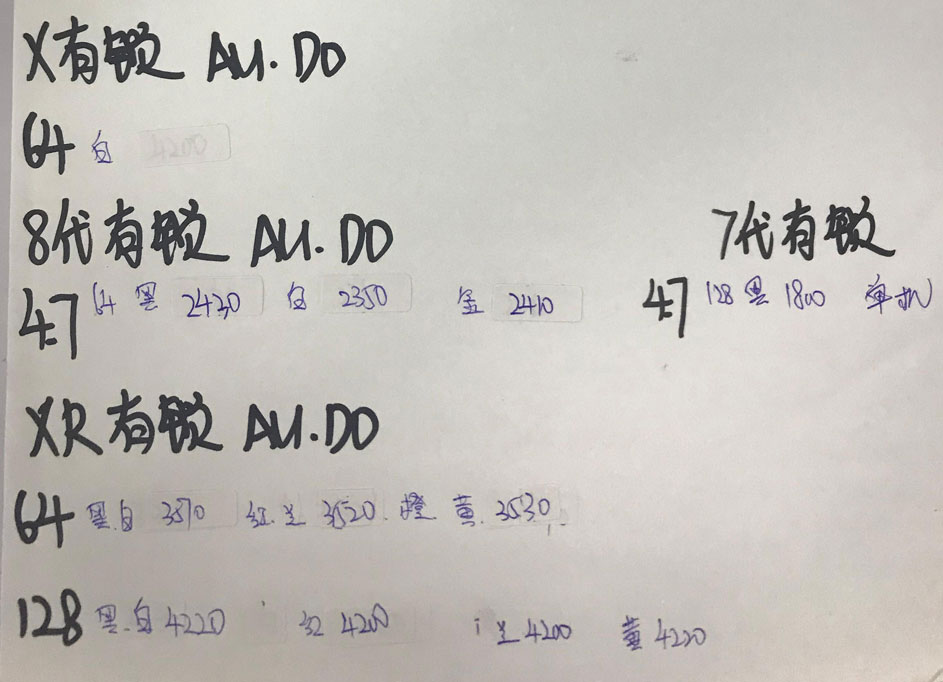 X有锁 AU.DO
64 白 4200
8代有锁 AU.DO
4.7 64 黑 2430 白 2350 金 2410
7代有锁
4.7 128 黑 1800 单机
XR有锁 AU.DO
64 黑.白 3570 红.兰 3520. 橙 黄. 3530
128 黑.白 4220 红 4200 兰 4200 黄 4220